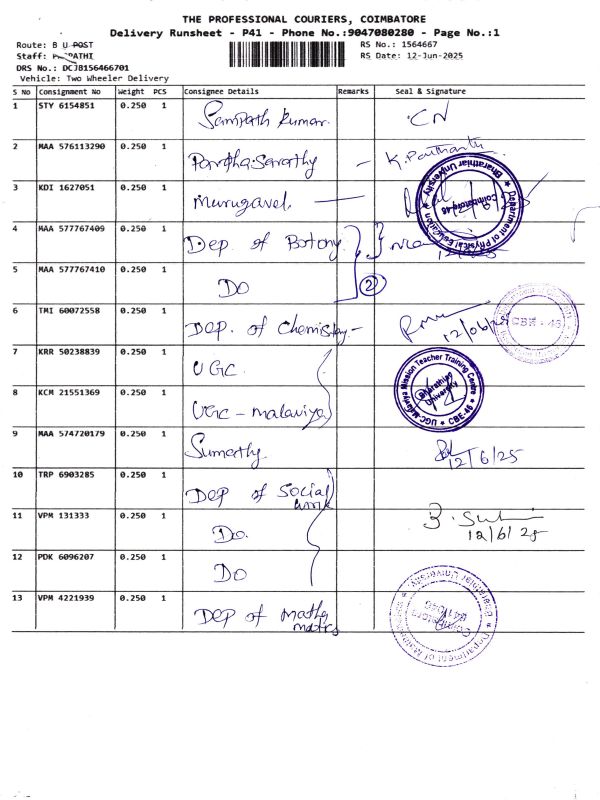 THE PROFESSIONAL COURIERS, COIMBATORE
Delivery Runsheet - P41 - Phone No.:9047080280 - Page No.:1
Route: B U POST
RS No.: 1564667
Staff:
RS Date: 12-Jun-2025
DRS No.: DCJB156466701
Vehicle: Two Wheeler Delivery
S No Consignment No Weight PCS Consignee Details Remarks Seal & Signature
1 STY 6154851 0.250 1 Sampath Kumar. CN
2 MAA 576113290 0.250 1 Partha Sarathy - K. Parthasarathy
3 KDI 1627051 0.250 1 Murugavel
Department of Physical Education ★ Bharathiar University ★ Coimbatore-46
4 MAA 577767409 0.250 1 Dep of Botony
12/6/25
5 MAA 577767410 0.250 1 Do 2
6 TMI 60072558 0.250 1 Dep. of Chemistry - 12/06/25
CBE - 46
7 KRR 50238839 0.250 1 UGC
8 KCM 21551369 0.250 1 UGC - malaviya
UGC-Malaviya Mission Teacher Training Centre ★ CBE-46 ★ Bharathiar University
9 MAA 574720179 0.250 1 Sumathy 12/6/25
10 TRP 6903285 0.250 1 Dep of Social work
11 VPM 131333 0.250 1 Do.
12/6/25
12 PDK 6096207 0.250 1 Do
13 VPM 4221939 0.250 1 Dep of Mathe
matics
Department of Bharathiar University Coimbatore 641046